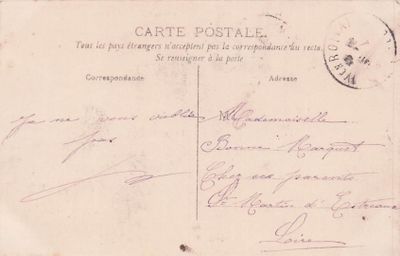 CARTE POSTALE
Tous les pays étrangers n'acceptent pas la correspondance au recto
Se renseigner à la poste
Correspondance
Adresse
Je ne vous oublie
pas
Mademoiselle
Bonne Marquet
Chez ses parents
St Martin d'Estreaux
Loire